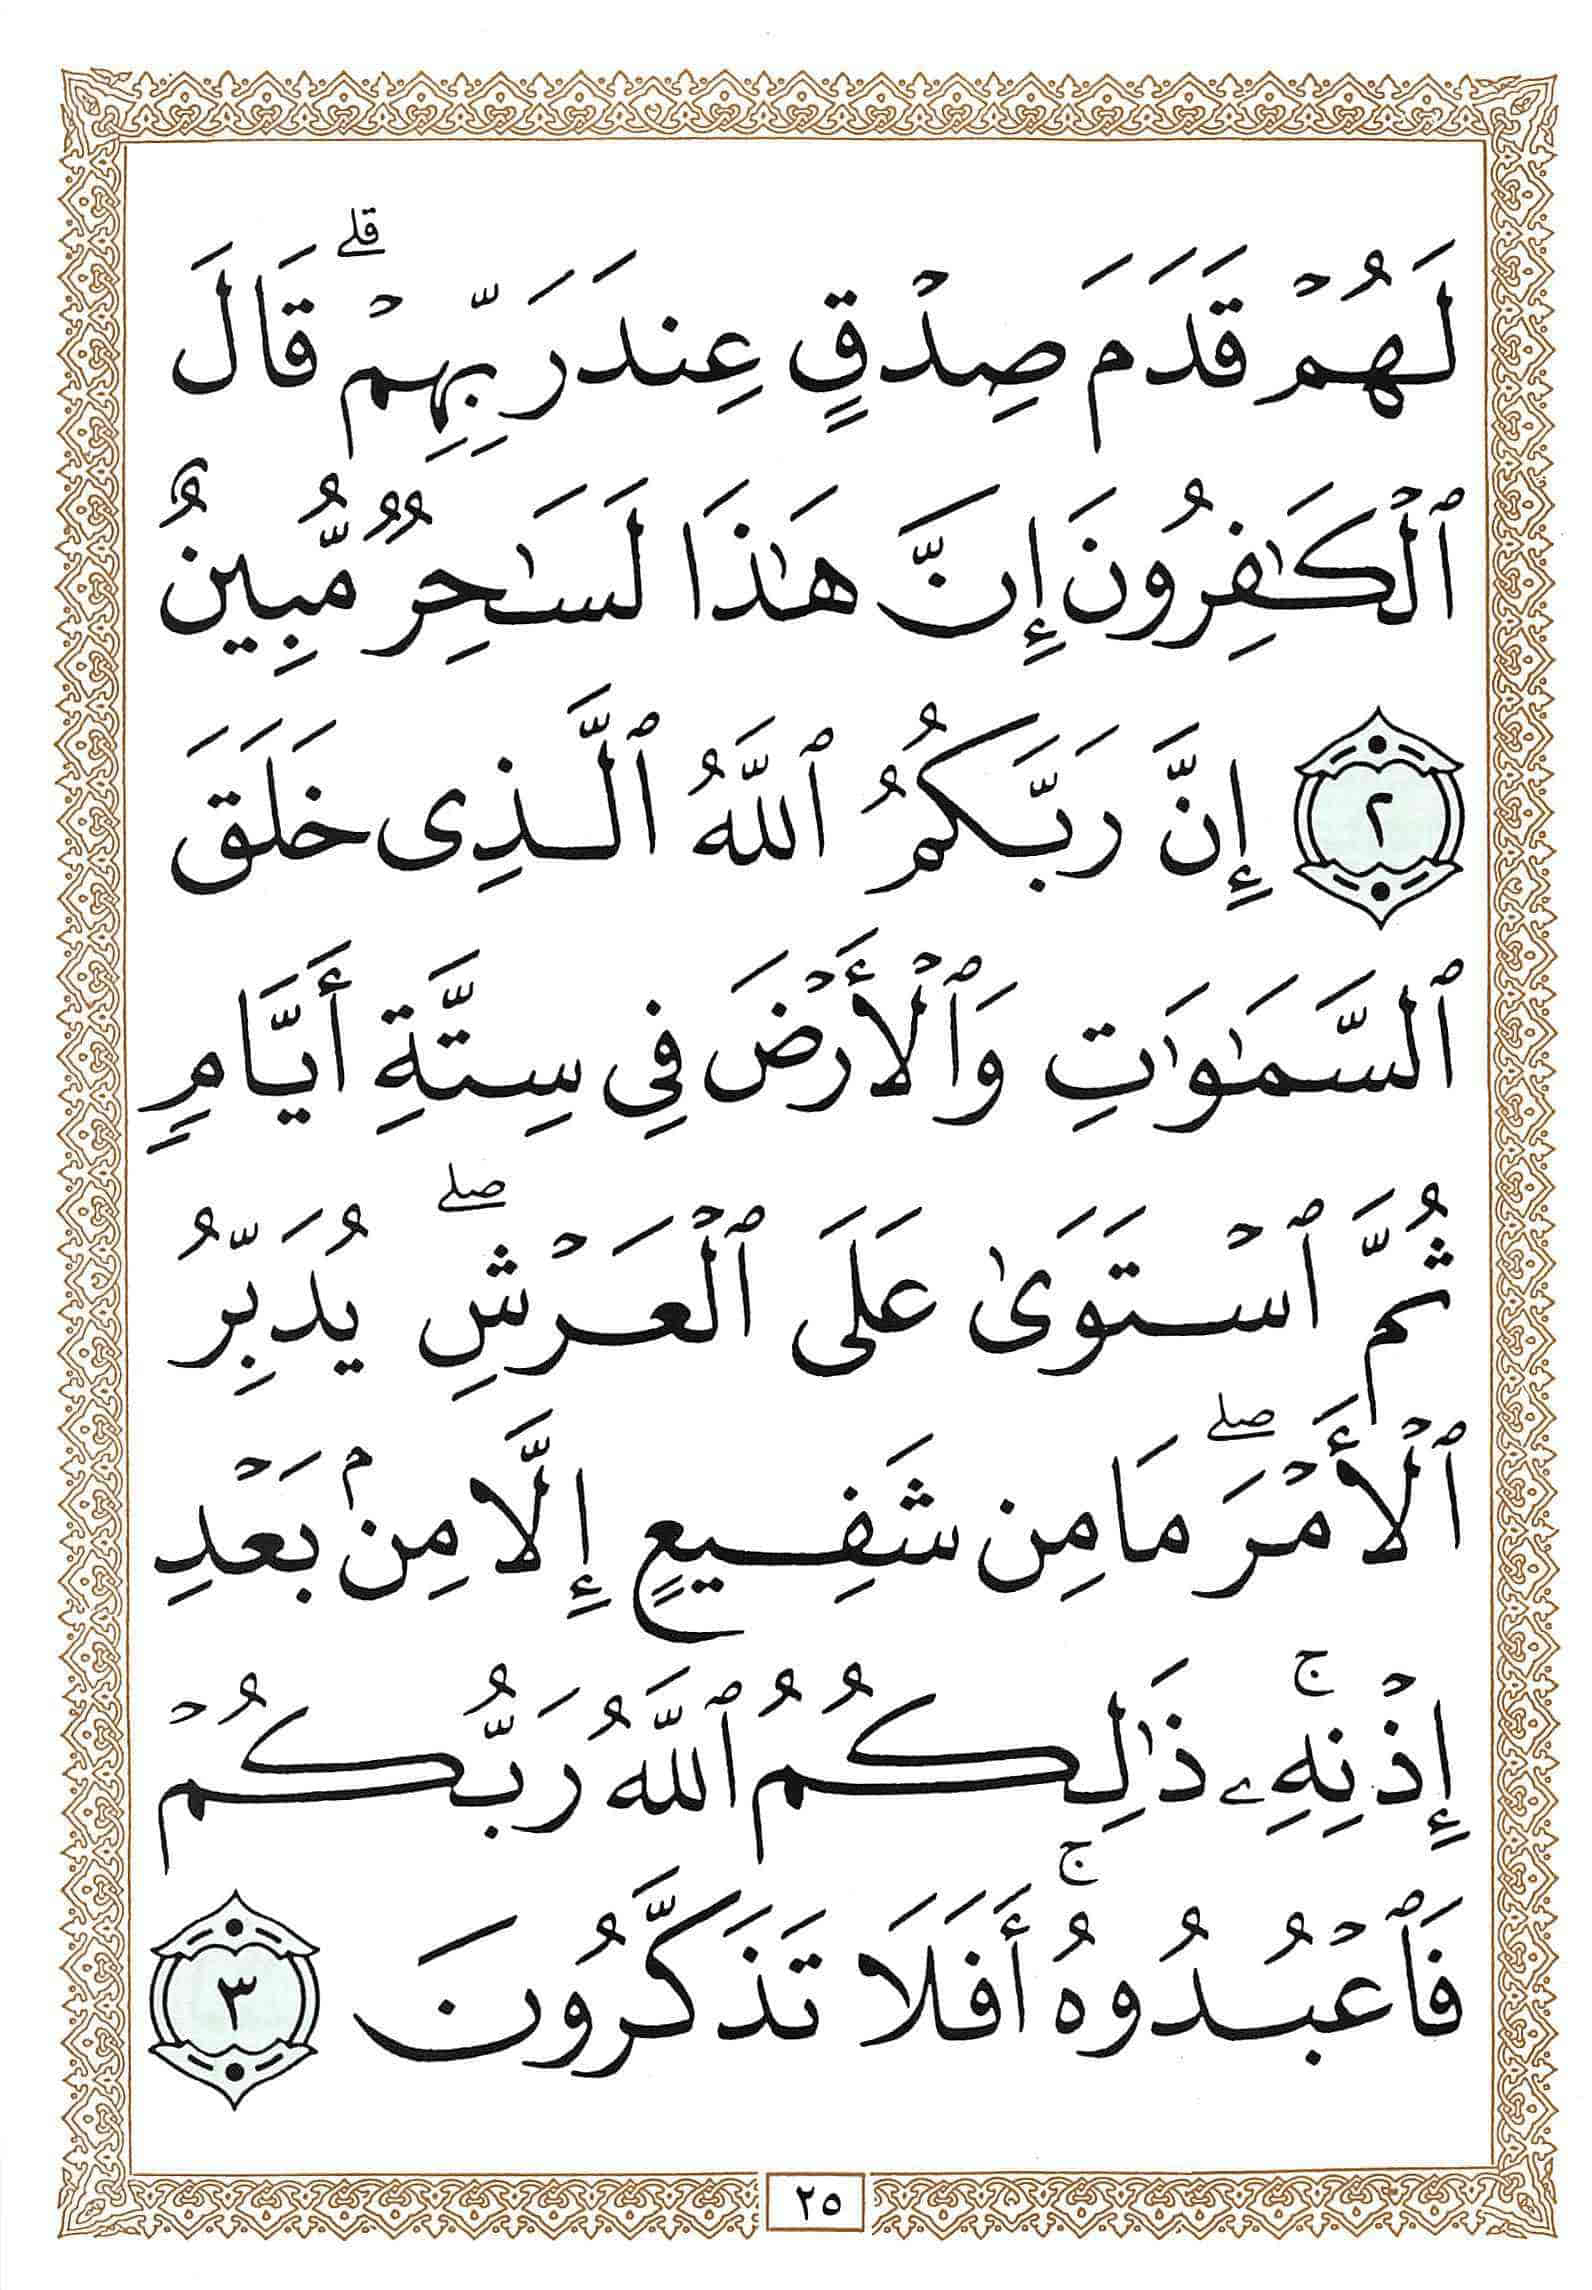 لَهُمۡ قَدَمَ صِدۡقٍ عِندَ رَبِّهِمۡۗ قَالَ
ٱلۡكَٰفِرُونَ إِنَّ هَٰذَا لَسَٰحِرٞ مُّبِينٌ
٢ إِنَّ رَبَّكُمُ ٱللَّهُ ٱلَّذِى خَلَقَ
ٱلسَّمَٰوَٰتِ وَٱلۡأَرۡضَ فِى سِتَّةِ أَيَّامٖ
ثُمَّ ٱسۡتَوَىٰ عَلَى ٱلۡعَرۡشِۖ يُدَبِّرُ
ٱلۡأَمۡرَۖ مَا مِن شَفِيعٍ إِلَّا مِنۢ بَعۡدِ
إِذۡنِهِۦۚ ذَٰلِكُمُ ٱللَّهُ رَبُّكُمۡ
فَٱعۡبُدُوهُۚ أَفَلَا تَذَكَّرُونَ ٣
٢٥